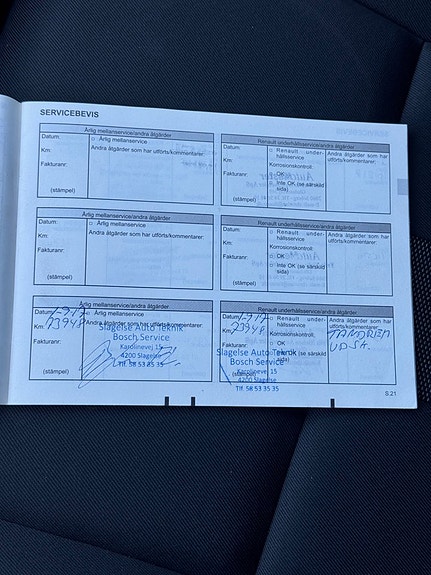 SERVICEBEVIS
Årlig mellanservice/andra åtgärder
Datum:
Årlig mellanservice
Km:
Andra åtgärder som har utförts/kommentarer:
Fakturanr:
(stämpel)
Renault underhållsservice/andra åtgärder
Datum:
Renault under-
hållsservice
Andra åtgärder som har utförts/kommentarer:
Km:
Korrosionskontroll:
Fakturanr:
OK
Inte OK (se särskild
sida)
(stämpel)
Årlig mellanservice/andra åtgärder
Datum:
Årlig mellanservice
Km:
Andra åtgärder som har utförts/kommentarer:
Fakturanr:
(stämpel)
Renault underhållsservice/andra åtgärder
Datum:
Renault under-
hållsservice
Andra åtgärder som har utförts/kommentarer:
Km:
Korrosionskontroll:
Fakturanr:
OK
Inte OK (se särskild
sida)
(stämpel)
Årlig mellanservice/andra åtgärder
Datum:
Årlig mellanservice
Km: 73948
Andra åtgärder som har utförts/kommentarer:
Fakturanr:
(stämpel)
Slagelse Auto Teknik
Bosch Service
Karolinevej 15
4200 Slagelse
Tlf. 58 53 35 35
Renault underhållsservice/andra åtgärder
Datum:
Renault under-
hållsservice
Andra åtgärder som har utförts/kommentarer:
Km: 73948
Korrosionskontroll:
TANDREM
UDSK.
Fakturanr:
OK
(se särskild
sida)
(stämpel)
Slagelse Auto Teknik
Bosch Service
Karolinevej 15
4200 Slagelse
Tlf. 58 53 35 35
S.21